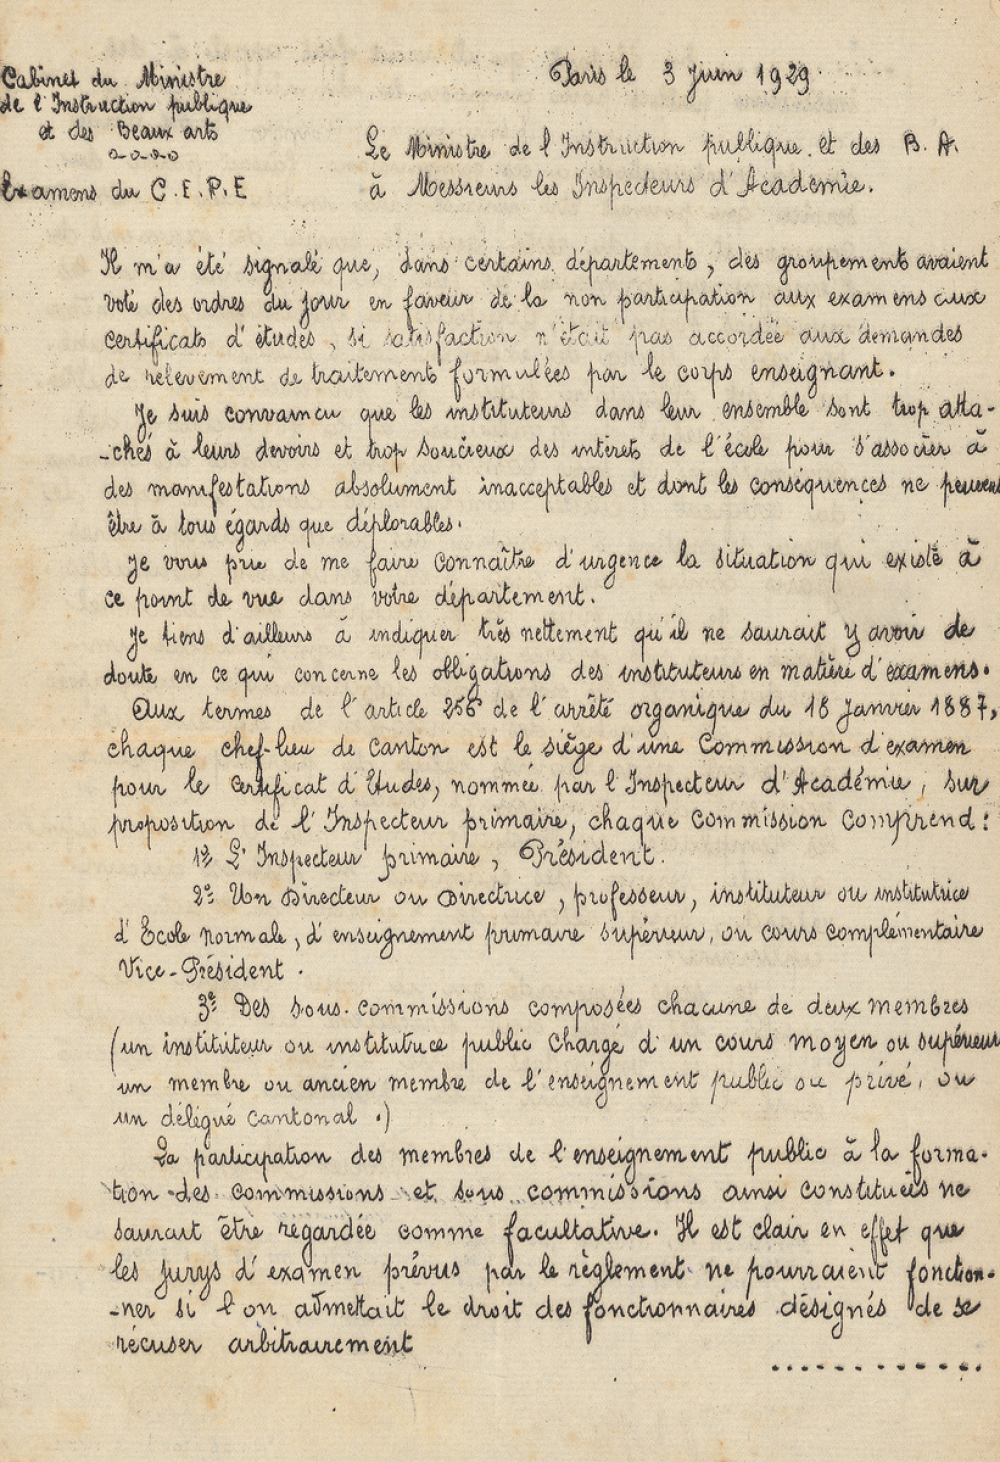 Cabinet du Ministre
de l'Instruction publique
et des Beaux arts
Examens du C.E.P.E
Paris le 3 Juin 1929.
Le Ministre de l'Instruction publique et des B. A.
à Messieurs les Inspecteurs d'Academie.
Il m'a été signalé que, dans certains départements, des groupements avaient
voté des ordres du jour en faveur de la non participation aux examens aux
certificats d'études, si satisfaction n'était pas accordée aux demandes
de relèvement de traitements formulées par le corps enseignant.
Je suis convaincu que les instituteurs dans leur ensemble sont trop atta-
-chés à leurs devoirs et trop soucieux des intérets de l'école pour s'associer à
des manifestations absolument inacceptables et dont les conséquences ne peuvent
être à tous égards que déplorables.
Je vous prie de me faire connaître d'urgence la situation qui existe à
ce point de vue dans votre département.
Je tiens d'ailleurs à indiquer très nettement qu'il ne saurait y avoir de
doute en ce qui concerne les obligations des instituteurs en matière d'examens.
Aux termes de l'article 256 de l'arrêté organique du 18 Janvier 1887,
chaque chef-lieu de canton est le siège d'une Commission d'examen
pour le certificat d'Etudes, nommée par l'Inspecteur d'Académie, sur
proposition de l'Inspecteur primaire, chaque commission comprend :
1º L'Inspecteur primaire, Président.
2º Un Directeur ou Directrice, professeur, instituteur ou institutrice
d'Ecole normale, d'enseignement primaire supérieur, ou cours complémentaire
Vice-Président.
3º Des sous-commissions composées chacune de deux membres
(un instituteur ou institutrice public chargé d'un cours moyen ou supérieur
un membre ou ancien membre de l'enseignement public ou privé, ou
un délégué cantonal.)
La participation des membres de l'enseignement public à la forma-
tion des commissions et sous commissions ainsi constituées ne
saurait être regardée comme facultative. Il est clair en effet que
les jurys d'examen prévus par le règlement ne pourraient fonction-
-ner si l'on admettait le droit des fonctionnaires désignés de se
récuser arbitrairement
............